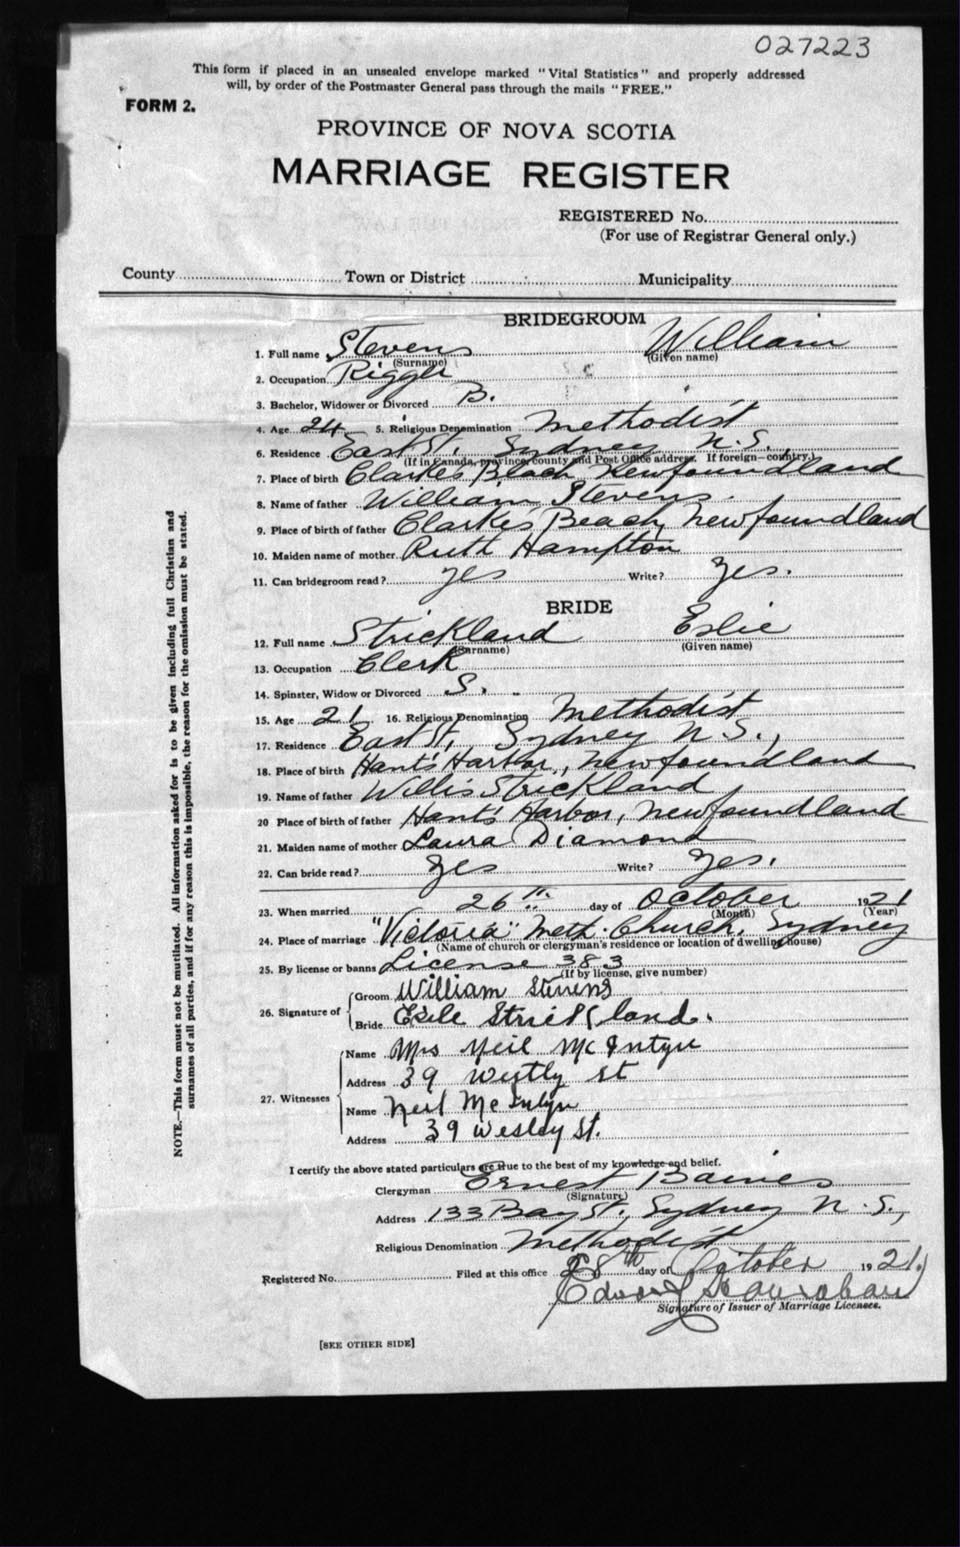 027223
This form if placed in an unsealed envelope marked "Vital Statistics" and properly addressed
will, by order of the Postmaster General pass through the mails "FREE."
FORM 2.
PROVINCE OF NOVA SCOTIA
MARRIAGE REGISTER
REGISTERED No.
(For use of Registrar General only.)
County Town or District Municipality
BRIDEGROOM
1. Full name Stevens William
(Surname) (Given name)
2. Occupation Riggle
3. Bachelor, Widower or Divorced B.
4. Age 24 5. Religious Denomination Methodist
6. Residence East St, Sydney N.S.
(If in Canada, province, county and Post Office address. If foreign—country.)
7. Place of birth Clarke's Beach, Newfoundland
8. Name of father William Stevens
9. Place of birth of father Clarke's Beach, Newfoundland
10. Maiden name of mother Ruth Hampton
11. Can bridegroom read? yes Write? yes.
BRIDE
12. Full name Strickland Eslie
(Surname) (Given name)
13. Occupation Clerk
14. Spinster, Widow or Divorced S.
15. Age 21 16. Religious Denomination Methodist
17. Residence East St, Sydney N.S.,
18. Place of birth Hant's Harbor, Newfoundland
19. Name of father Willis Strickland
20 Place of birth of father Hant's Harbor, Newfoundland
21. Maiden name of mother Laura Diamond
22. Can bride read? yes Write? yes.
23. When married 26th day of October 1921
(Month) (Year)
24. Place of marriage "Victoria" Meth. Church, Sydney
(Name of church or clergyman's residence or location of dwelling house)
25. By license or banns License 383
(If by license, give number)
26. Signature of
Groom William Stevens
Bride Strickland.
27. Witnesses
Name Mrs Neil McIntyre
Address 39 St
Name Neil McIntyre
Address 39 Wesley St.
I certify the above stated particulars are true to the best of my knowledge and belief.
Clergyman Ernest Baines
(Signature)
Address 133 Bay St., Sydney N.S.,
Religious Denomination Methodist
Registered No. Filed at this office 28th day of October 1921.
Edward
Signature of Issuer of Marriage Licenses.
[SEE OTHER SIDE]
NOTE.—This form must not be mutilated. All information asked for is to be given including full Christian and
surnames of all parties, and if for any reason this is impossible, the reason for the omission must be stated.